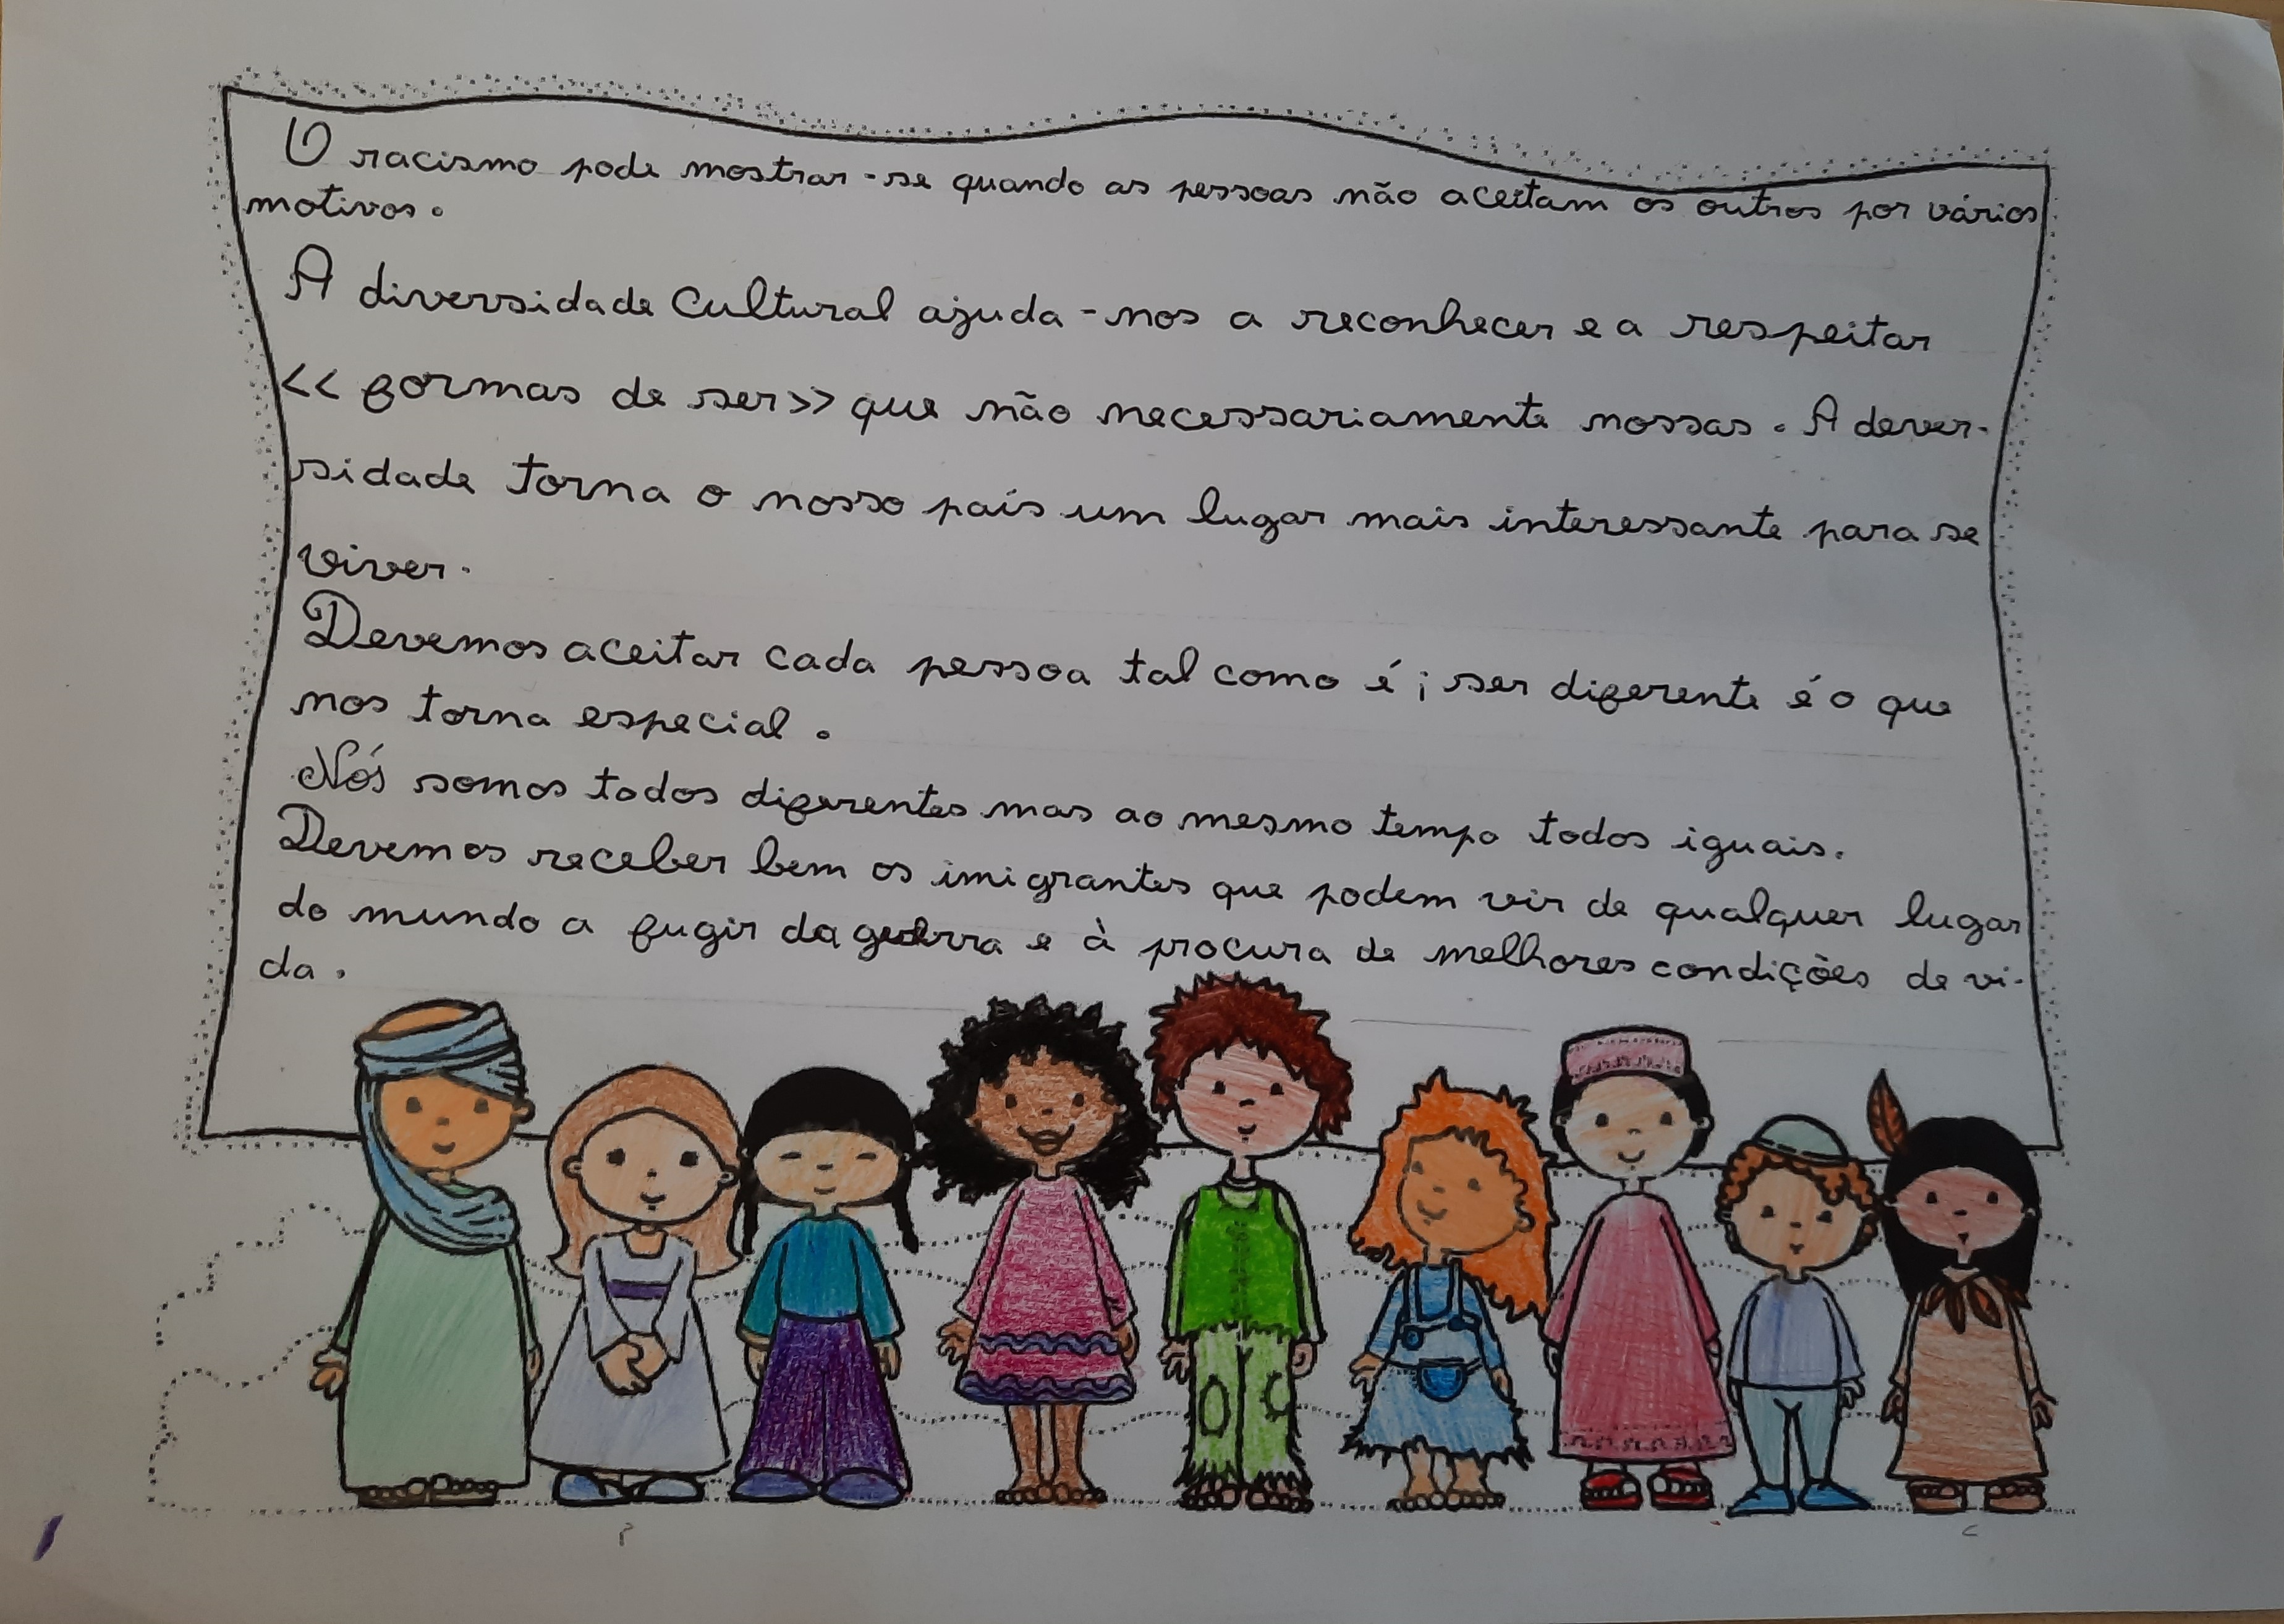 O racismo pode mostrar-se quando as pessoas não aceitam os outros por vários
motivos.
A diversidade Cultural ajuda-nos a reconhecer e a respeitar
<< formas de ser>> que não necessariamente nossas. A dever-
sidade torna o nosso país um lugar mais interessante para se
viver.
Devemos aceitar cada pessoa tal como é; ser diferente é o que
nos torna especial.
Nós somos todos diferentes mas ao mesmo tempo todos iguais.
Devemos receber bem os imigrantes que podem vir de qualquer lugar
do mundo a fugir da guerra e à procura de melhores condições de vi-
da.